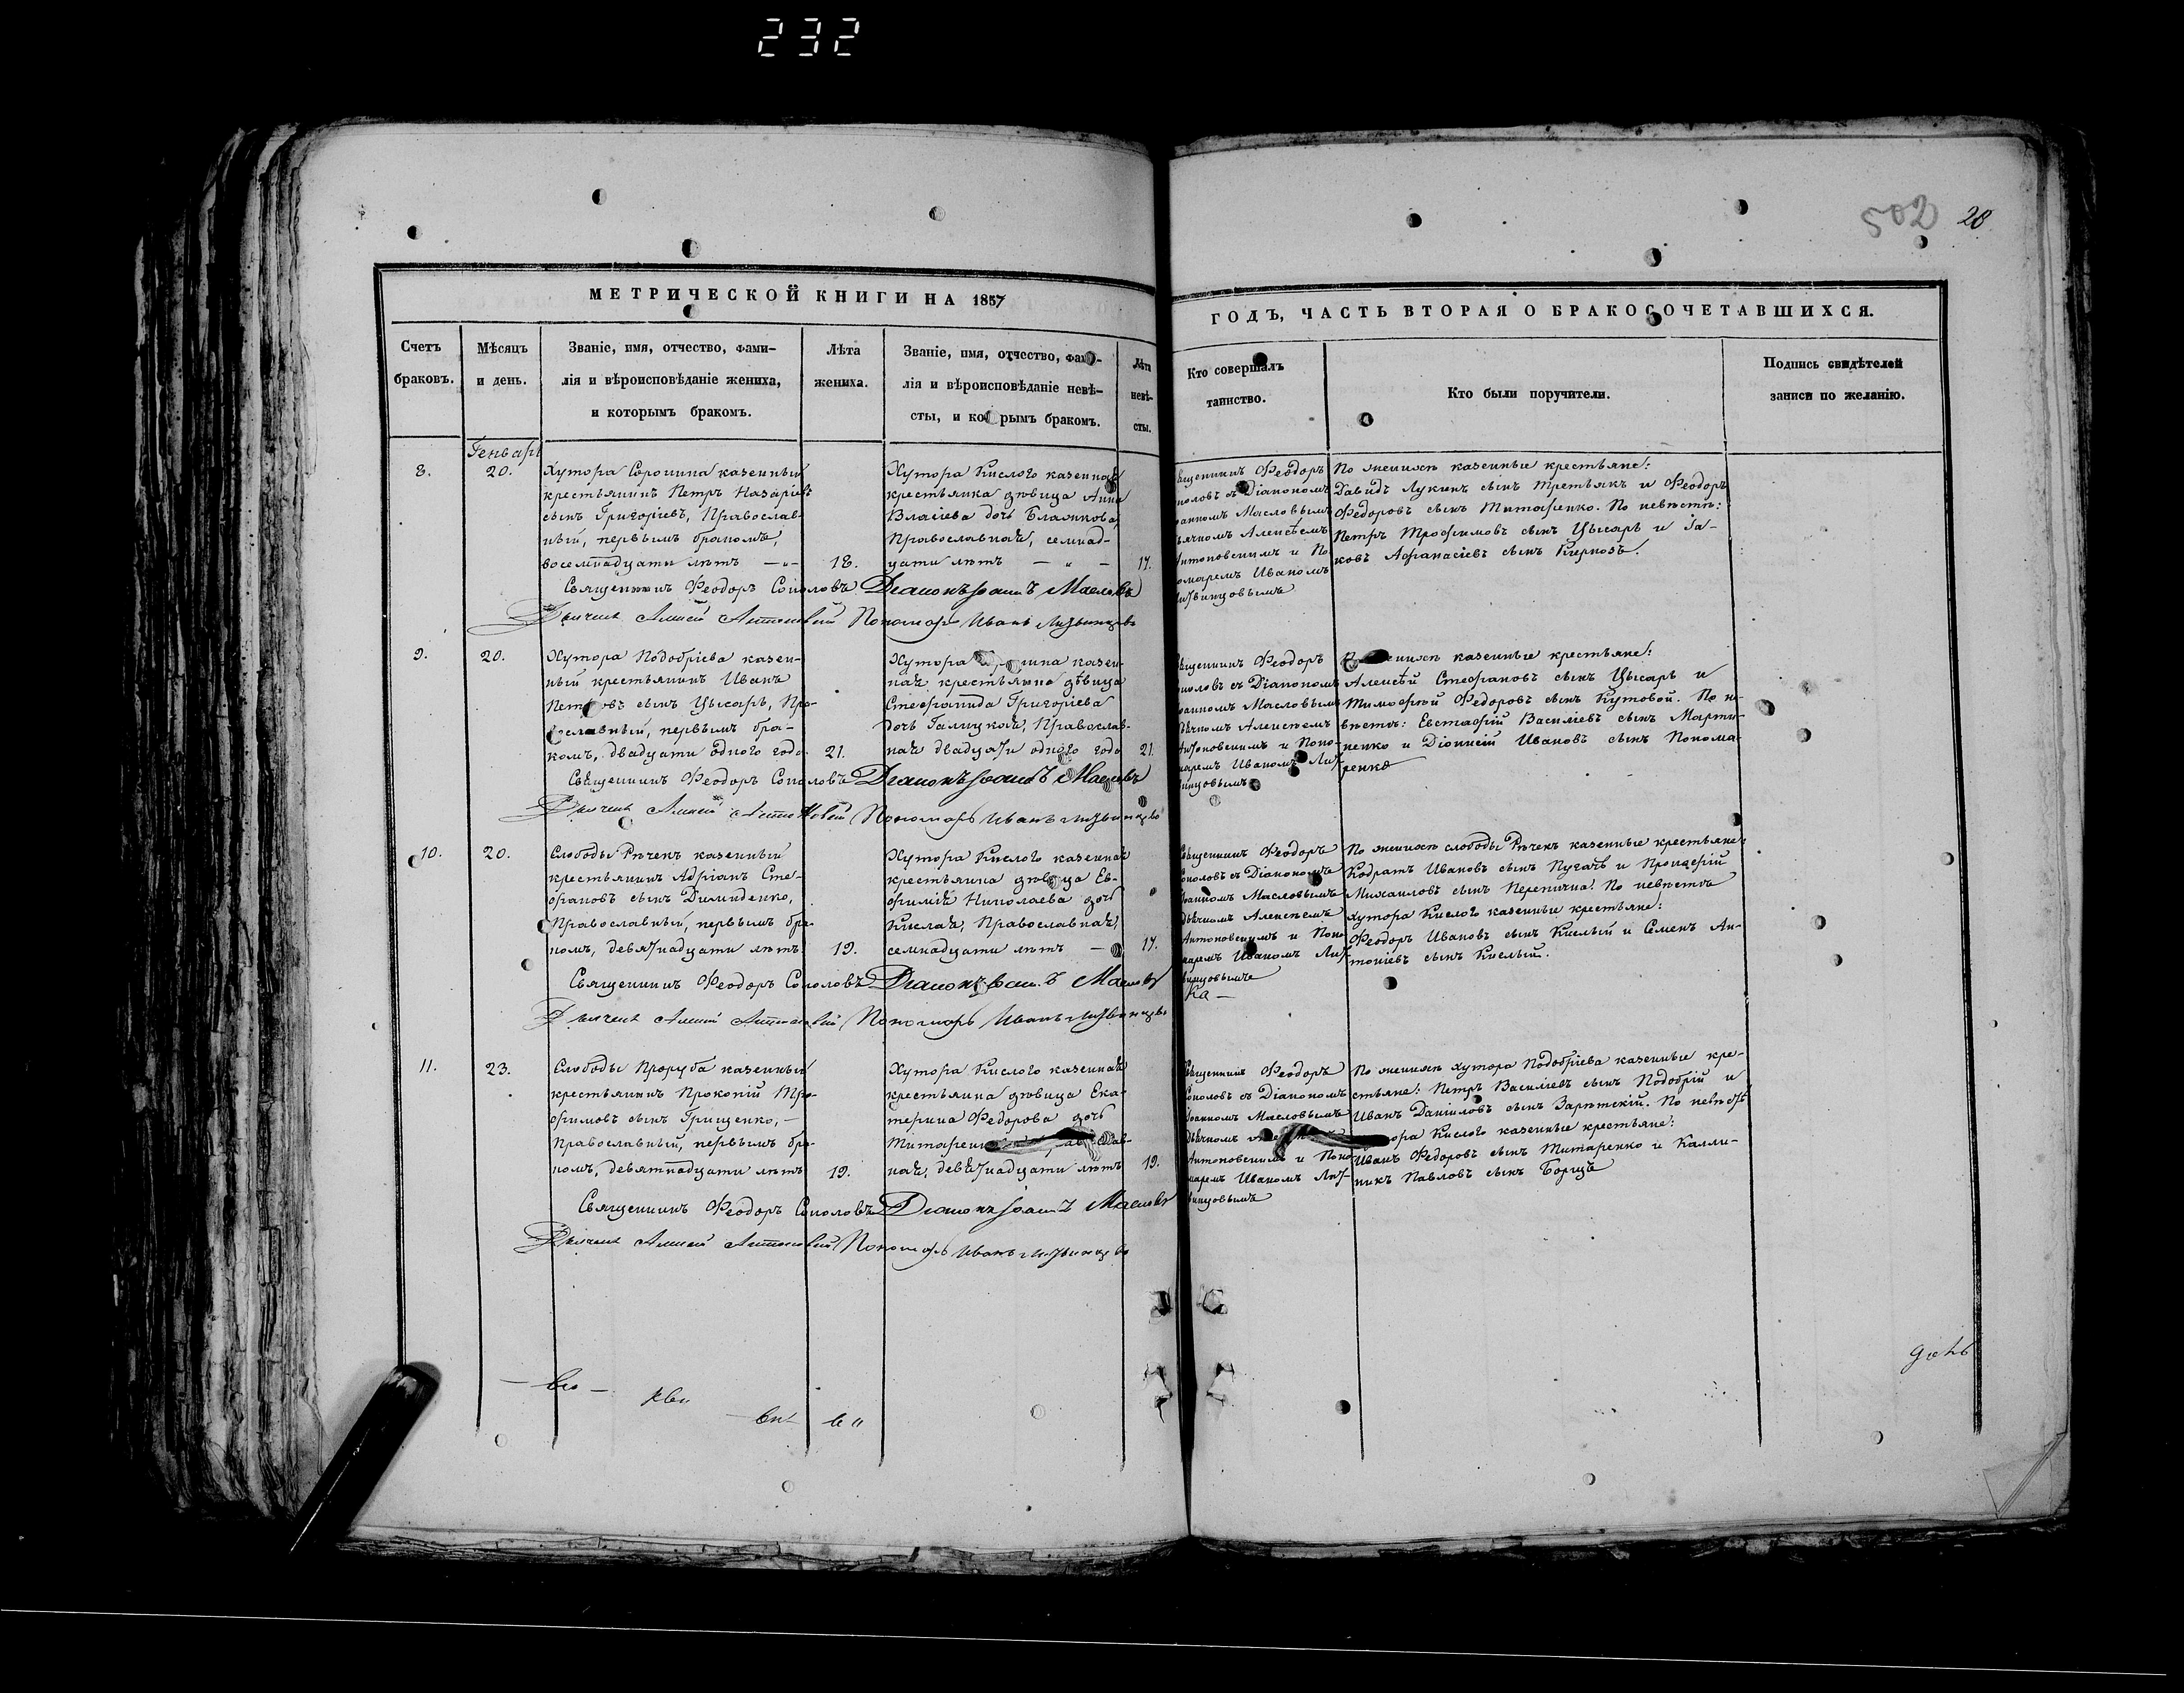 232
502 28
МЕТРИЧЕСКОЙ КНИГИ НА 1857
ГОДЪ, ЧАСТЬ ВТОРАЯ О БРАКОСОЧЕТАВШИХСЯ.
Счетъ
браковъ.
Мѣсяцъ
и день.
Званіе, имя, отчество, фами-
лія и вѣроисповѣданіе жениха,
и которымъ бракомъ.
Лѣта
жениха.
Званіе, имя, отчество, фами-
лія и вѣроисповѣданіе невѣ-
сты, и которымъ бракомъ.
Лѣта
невѣ-
сты.
Кто совершалъ
таинство.
Кто были поручители.
Подпись свидѣтелей
записи по желанію.
Генварь
8.
20.
Хутора Сорокина казенный
крестьянинъ Петръ Назаріевъ
сынъ Григоріевъ, Православ-
ный, первымъ бракомъ,
восемнадцати лѣтъ —"—
18.
Хутора Кислого казенная
крестьянка дѣвица Анна
Власіева дочь
Православная, семнад-
цати лѣтъ — " —
17.
Священникъ Феодоръ
Соколовъ съ Діакономъ
Іоанномъ Масловымъ
Дьячкомъ Алексѣемъ
Антоновскимъ и По
номаремъ Иваномъ
Литвинцовымъ
По женихѣ казенные крестьяне:
Давидъ Лукинъ сынъ Третьякъ и Феодоръ
Федоровъ сынъ Титаренко. По невѣстѣ:
Петръ Трофимовъ сынъ Цысарь и Іа-
ковъ Афанасіевъ сынъ
Священникъ Феодоръ Соколовъ Діаконъ Іоаннъ Масловъ
Дьячекъ Алексѣй Антоновскій Пономарь Иванъ Литвинцовъ
9.
20.
Хутора Подобріева казен-
ный крестьянинъ Иванъ
Петровъ сынъ Цысарь, Пра-
вославный, первымъ бра-
комъ, двадцати одного года
21.
Хутора казен-
ная крестьянка дѣвица
Стефанида Григоріева
дочь Галицкая, Православ-
ная двадцати одного года
21.
Священникъ Феодоръ
Соколовъ съ Діакономъ
Іоанномъ Масловымъ
Дьячкомъ Алексѣемъ
Антоновскимъ и Поно-
маремъ Иваномъ Лит-
винцовымъ
По женихѣ казенные крестьяне:
Алексѣй Стефановъ сынъ Цысарь и
Тимофей Федоровъ сынъ Кутовой. По не-
вѣстѣ: Евстафій Василіевъ сынъ Марти-
ненко и Діонисій Ивановъ сынъ Понома-
ренко
Священникъ Феодоръ Соколовъ Діаконъ Іоаннъ Масловъ
Дьячекъ Алексѣй Антоновскій Пономарь Иванъ Литвинцовъ
10.
20.
Слободы Рѣчекъ казенный
крестьянинъ Адріанъ Сте-
фановъ сынъ
Православный, первымъ бра-
комъ, девятнадцати лѣтъ
19.
Хутора Кислого казенная
крестьянка дѣвица Ев-
фимія Николаева дочь
Кислая, Православная,
семнадцати лѣтъ —
17.
Священникъ Феодоръ
Соколовъ съ Діакономъ
Іоанномъ Масловымъ
Дьячкомъ Алексѣемъ
Антоновскимъ и Поно
маремъ Иваномъ Лит-
винцовымъ
По женихѣ слободы Рѣчекъ казенные крестьяне:
Кодратъ Ивановъ сынъ Пугачъ и
Михаиловъ сынъ Перепична. По невѣстѣ
хутора Кислого казенные крестьяне:
Феодоръ Ивановъ сынъ Кислый и Семенъ Ан-
тоніевъ сынъ Кислый.
Священникъ Феодоръ Соколовъ Діаконъ Іоаннъ Масловъ
Ка —
Дьячекъ Алексѣй Антоновскій Пономарь Иванъ Литвинцовъ
11.
23.
Слободы Проруба казенный
крестьянинъ Прокопій Тро-
фимовъ сынъ Грищенко, —
Православный, первымъ бра-
комъ, девятнадцати лѣтъ
19.
Хутора Кислого казенная
крестьянка дѣвица Ека-
терина Федорова дочь
Титаренкова, Православ-
ная, девятнадцати лѣтъ
19.
Священникъ Феодоръ
Соколовъ съ Діакономъ
Іоанномъ Масловымъ
Дьячкомъ Алексѣемъ
Антоновскимъ и Поно
маремъ Иваномъ Лит-
винцовымъ
По женихѣ хутора Подобріева казенные кре-
стьяне: Петръ Василіевъ сынъ Подобрій и
Иванъ Даніиловъ сынъ Зарѣтскій. По невѣстѣ
хутора Кислого казенные крестьяне:
Иванъ Федоровъ сынъ Титаренко и Калли-
никъ Павловъ сынъ Борщъ
Священникъ Феодоръ Соколовъ Діаконъ Іоаннъ Масловъ
Дьячекъ Алексѣй Антоновскій Пономарь Иванъ Литвинцовъ